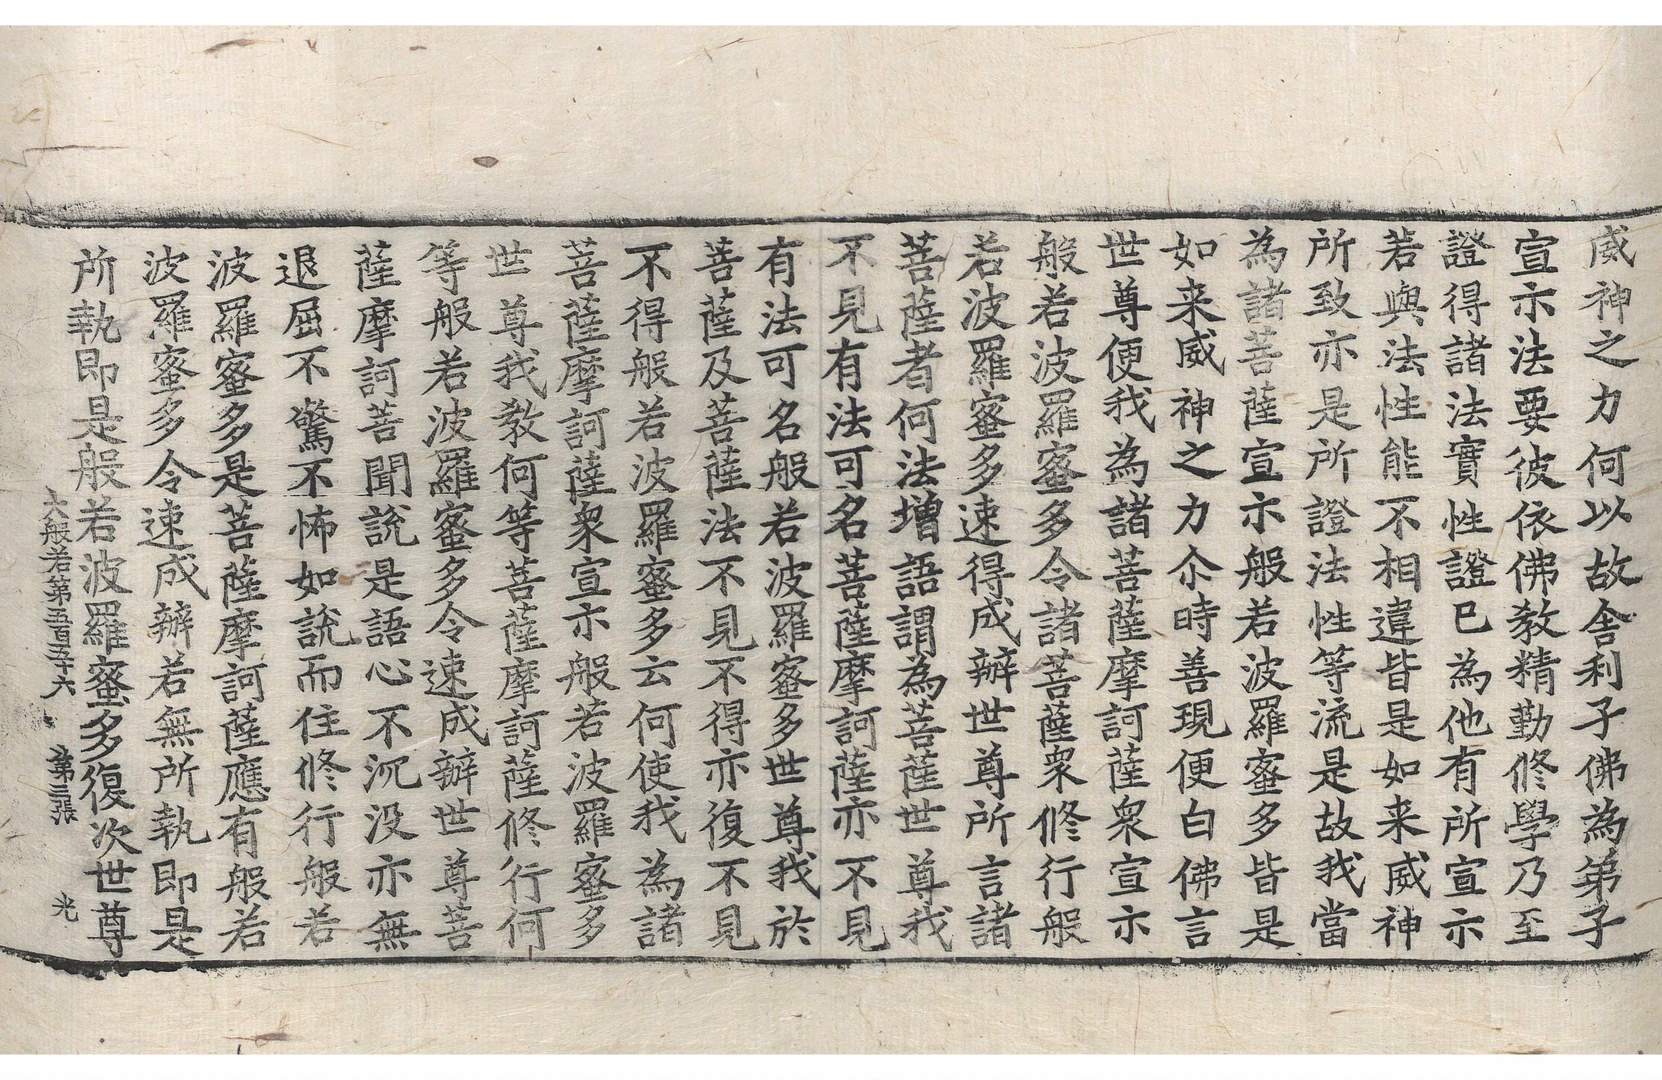 威神之力何以故舍利子佛為弟子
宣示法要彼依佛教精勤修學乃至
證得諸法實性證已為他有所宣示
若與法性能不相違皆是如来威神
所致亦是所證法性等流是故我當
為諸菩薩宣示般若波羅蜜多皆是
如来威神之力尒時善現便白佛言
世尊便我為諸菩薩摩訶薩衆宣示
般若波羅蜜多令諸菩薩衆修行般
若波羅蜜多速得成辦世尊所言諸
菩薩者何法增語謂為菩薩世尊我
不見有法可名菩薩摩訶薩亦不見
有法可名般若波羅蜜多世尊我於
菩薩及菩薩法不見不得亦復不見
不得般若波羅蜜多云何使我為諸
菩薩摩訶薩衆宣示般若波羅蜜多
世尊我教何等菩薩摩訶薩修行何
等般若波羅蜜多令速成辦世尊菩
薩摩訶菩聞說是語心不沉没亦無
退屈不驚不怖如說而住修行般若
波羅蜜多是菩薩摩訶薩應有般若
波羅蜜多令速成辦若無所執即是
所執即是般若波羅蜜多復次世尊
大般若第五百五十六 第三張 光